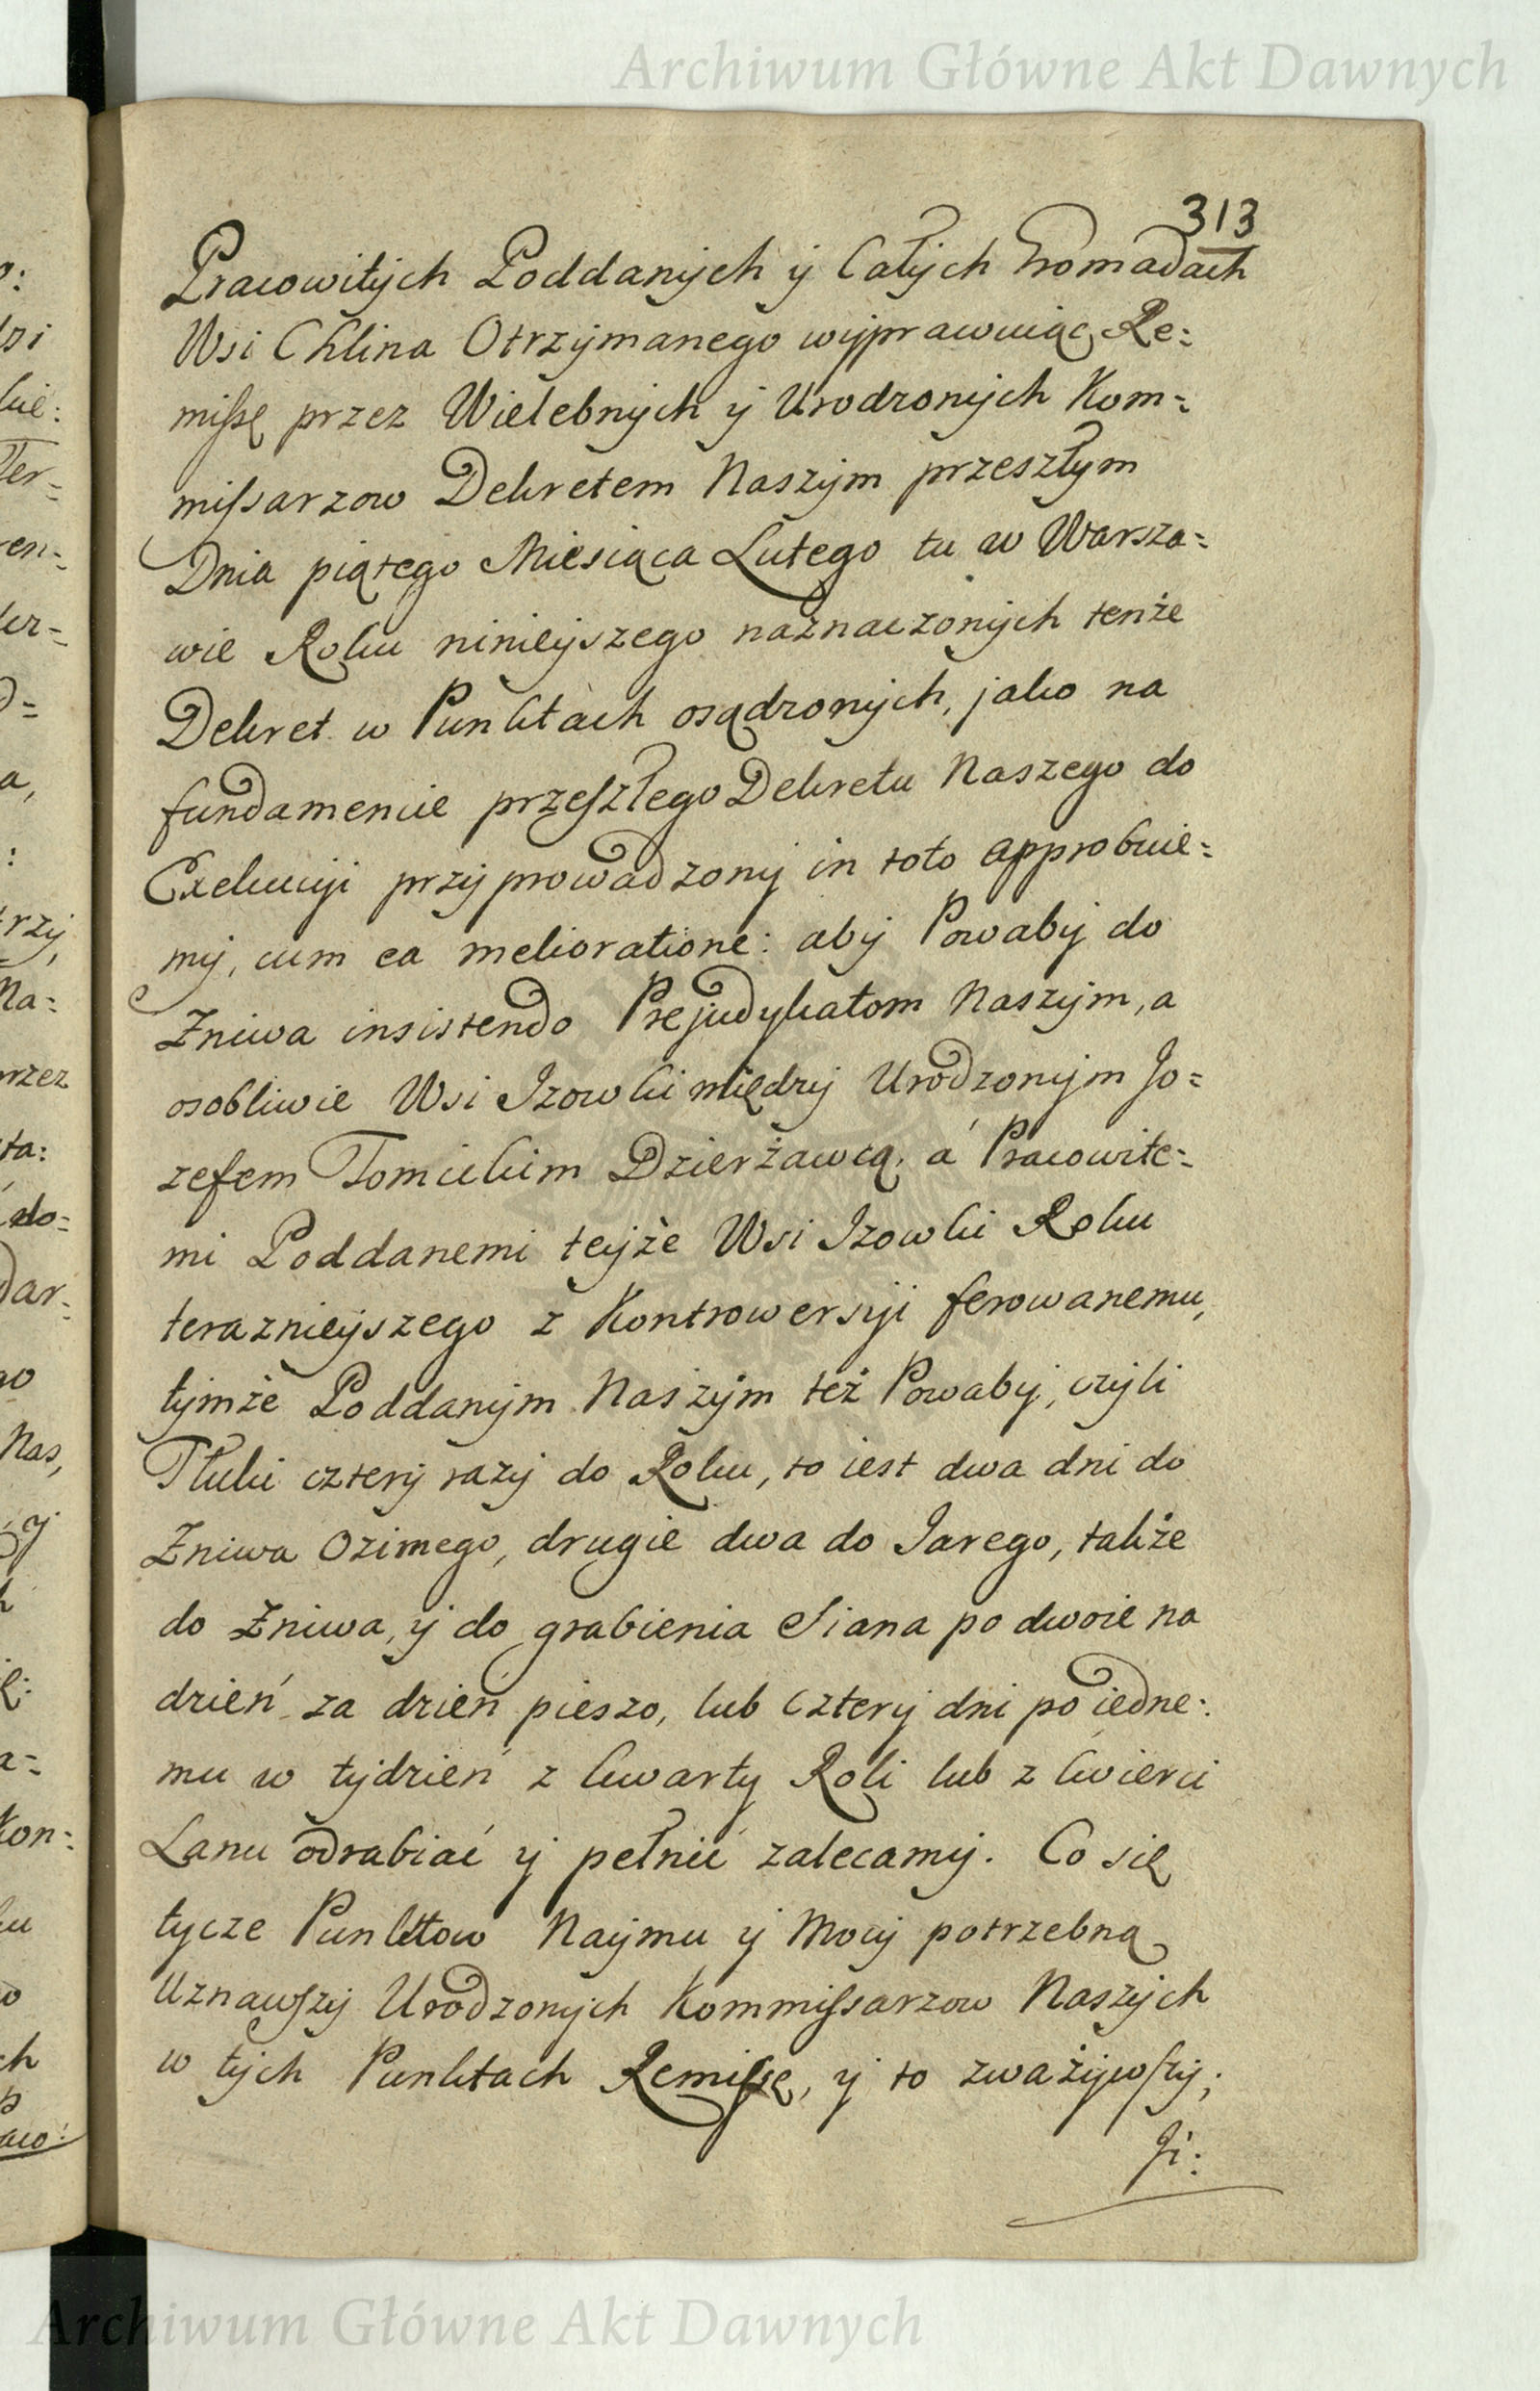 Archiwum Główne Akt Dawnych
313
Pracowitych Poddanych y Całych Gromadach
Wsi Chlina Otrzymanego wyprawuiąc Re=
missę przez Wielebnych y Urodzonych Kom=
missarzow Dekretem Naszym przeszłym
Dnia piątego Miesiąca Lutego tu w Warsza=
wie Roku ninieyszego naznaczonych tenże
Dekret w Punktach osądzonych, jako na
fundamencie przeszłego Dekretu Naszego do
Exekucyi przyprowadzony in toto approbuie=
my, cum ea melioratione: aby Powaby do
Żniwa insistendo Prejudykatom Naszym, a
osobliwie Wsi Jzowki między Urodzonym Jo=
zefem Tomickim Dzierżawcą, á Pracowite=
mi Poddanemi teyże Wsi Jzowki Roku
teraznieyszego z Kontrowersyi ferowanemu,
tymże Poddanym Naszym też Powaby, czyli
Tłuki cztery razy do Roku, to iest dwa dni do
Żniwa Ozimego, drugie dwa do Jarego, także
do Żniwa, y do grabienia Siana po dwoie na
dzień za dzień pieszo, lub cztery dni po iedne:
mu w tydzień z kwarty Roli lub z ćwierci
Lanu odrabiać y pełnić zalecamy. Co się
tycze Punktow Naymu y Mocy potrzebną
Uznawszy Urodzonych Kommissarzow Naszych
w tych Punktach Remissę, y to zważywszy;
Jż:
Archiwum Główne Akt Dawnych